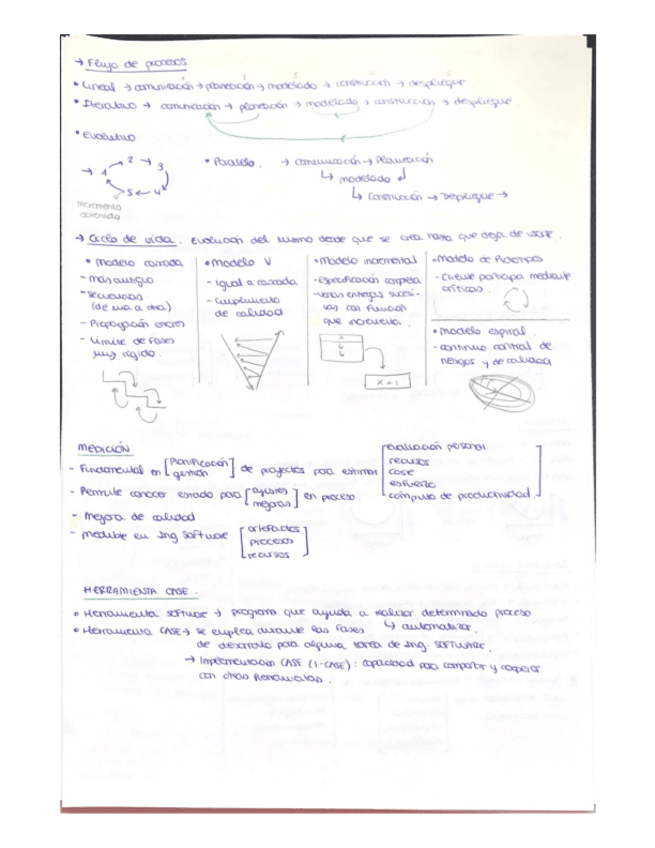 → Flujo de procesos
• Lineal → comunicación → planeación → modelado → construcción → despliegue.
• Iterativo → comunicación → planeación → modelado → construcción → despliegue.
• Evolutivo
→ 1 2 → 3
5 ← 4
Incremento
obtenido
• Paralelo. → comunicación → Planeación
↳ modelado
↳ Construcción → Despliegue →
→ Ciclo de vida. Evolución del mismo desde que se crea hasta que deja de usarse.
• Modelo cascada
- más antiguo
- secuencias
(de una a otra)
- Propagación errores
- Límite de fases
muy rígido.
• Modelo V
- Igual a cascada
- Cumplimiento
de calidad
• Modelo incremental
- Especificación completa
- varias entregas sucesi-
vas con función
que incrementa.
x + 1
• Modelo de Prototipos
- Cliente participa mediante
críticas.
• Modelo espiral.
- continuo control de
riesgos y de calidad
MEDICIÓN
- Fundamental en [Planificación gestión] de proyectos para estimar [evaluación personal
recursos
coste
esfuerzo
cómputo de productividad.]
- Permite conocer estado para [ajustes mejoras] en proceso.
- Mejora de calidad
- medible en Ing Software [artefactos
procesos
recursos]
HERRAMIENTA CASE.
• Herramienta software → programa que ayuda a realizar determinado proceso
↳ automatizar.
• Herramienta CASE → se emplea durante las fases
de desarrollo para alguna tarea de Ing. SOFTWARE.
→ Implementación CASE (I-CASE): capacidad para compartir y cooperar
con otras herramientas.